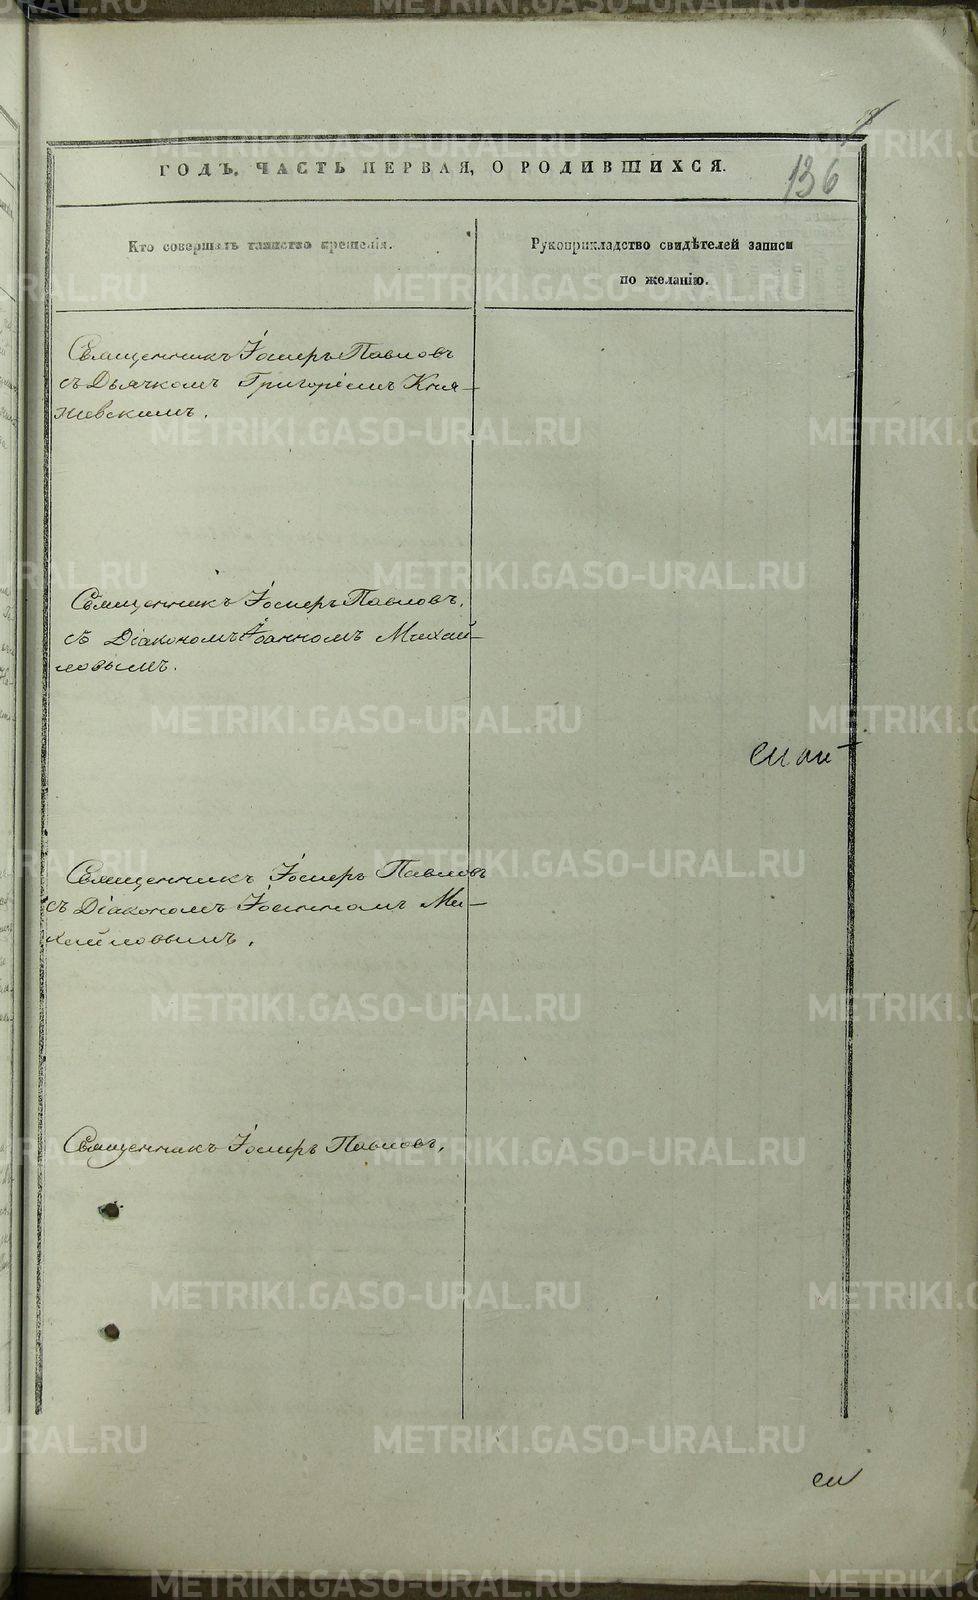 ГОДЪ. ЧАСТЬ ПЕРВАЯ, О РОДИВШИХСЯ.
136
Кто совершалъ таинство крещенія.
Рукоприкладство свидѣтелей записи
по желанію.
Священникъ Іосифъ Павловъ
съ Дьячкомъ Григоріемъ Кня-
жевскимъ.
Священникъ Іосифъ Павловъ,
съ Діакономъ Іоанномъ Михай-
ловымъ.
Священникъ Іосифъ Павловъ
съ Діакономъ Іоанномъ Ми-
хайловымъ.
Священникъ Іосифъ Павловъ,
METRIKI.GASO-URAL.RU